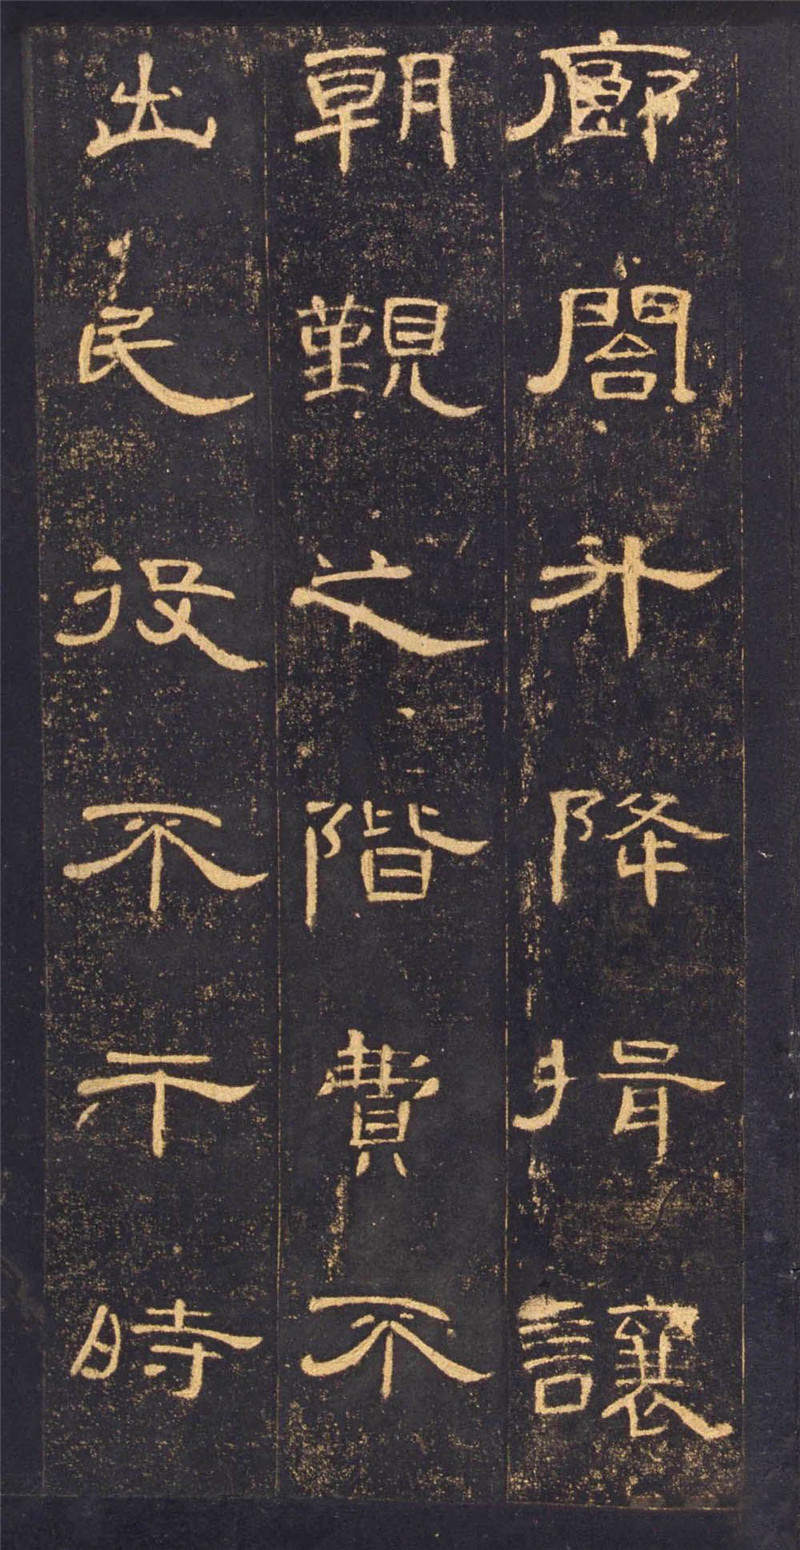 廊閤升降揖讓
朝覲之階費不
出民役不干時